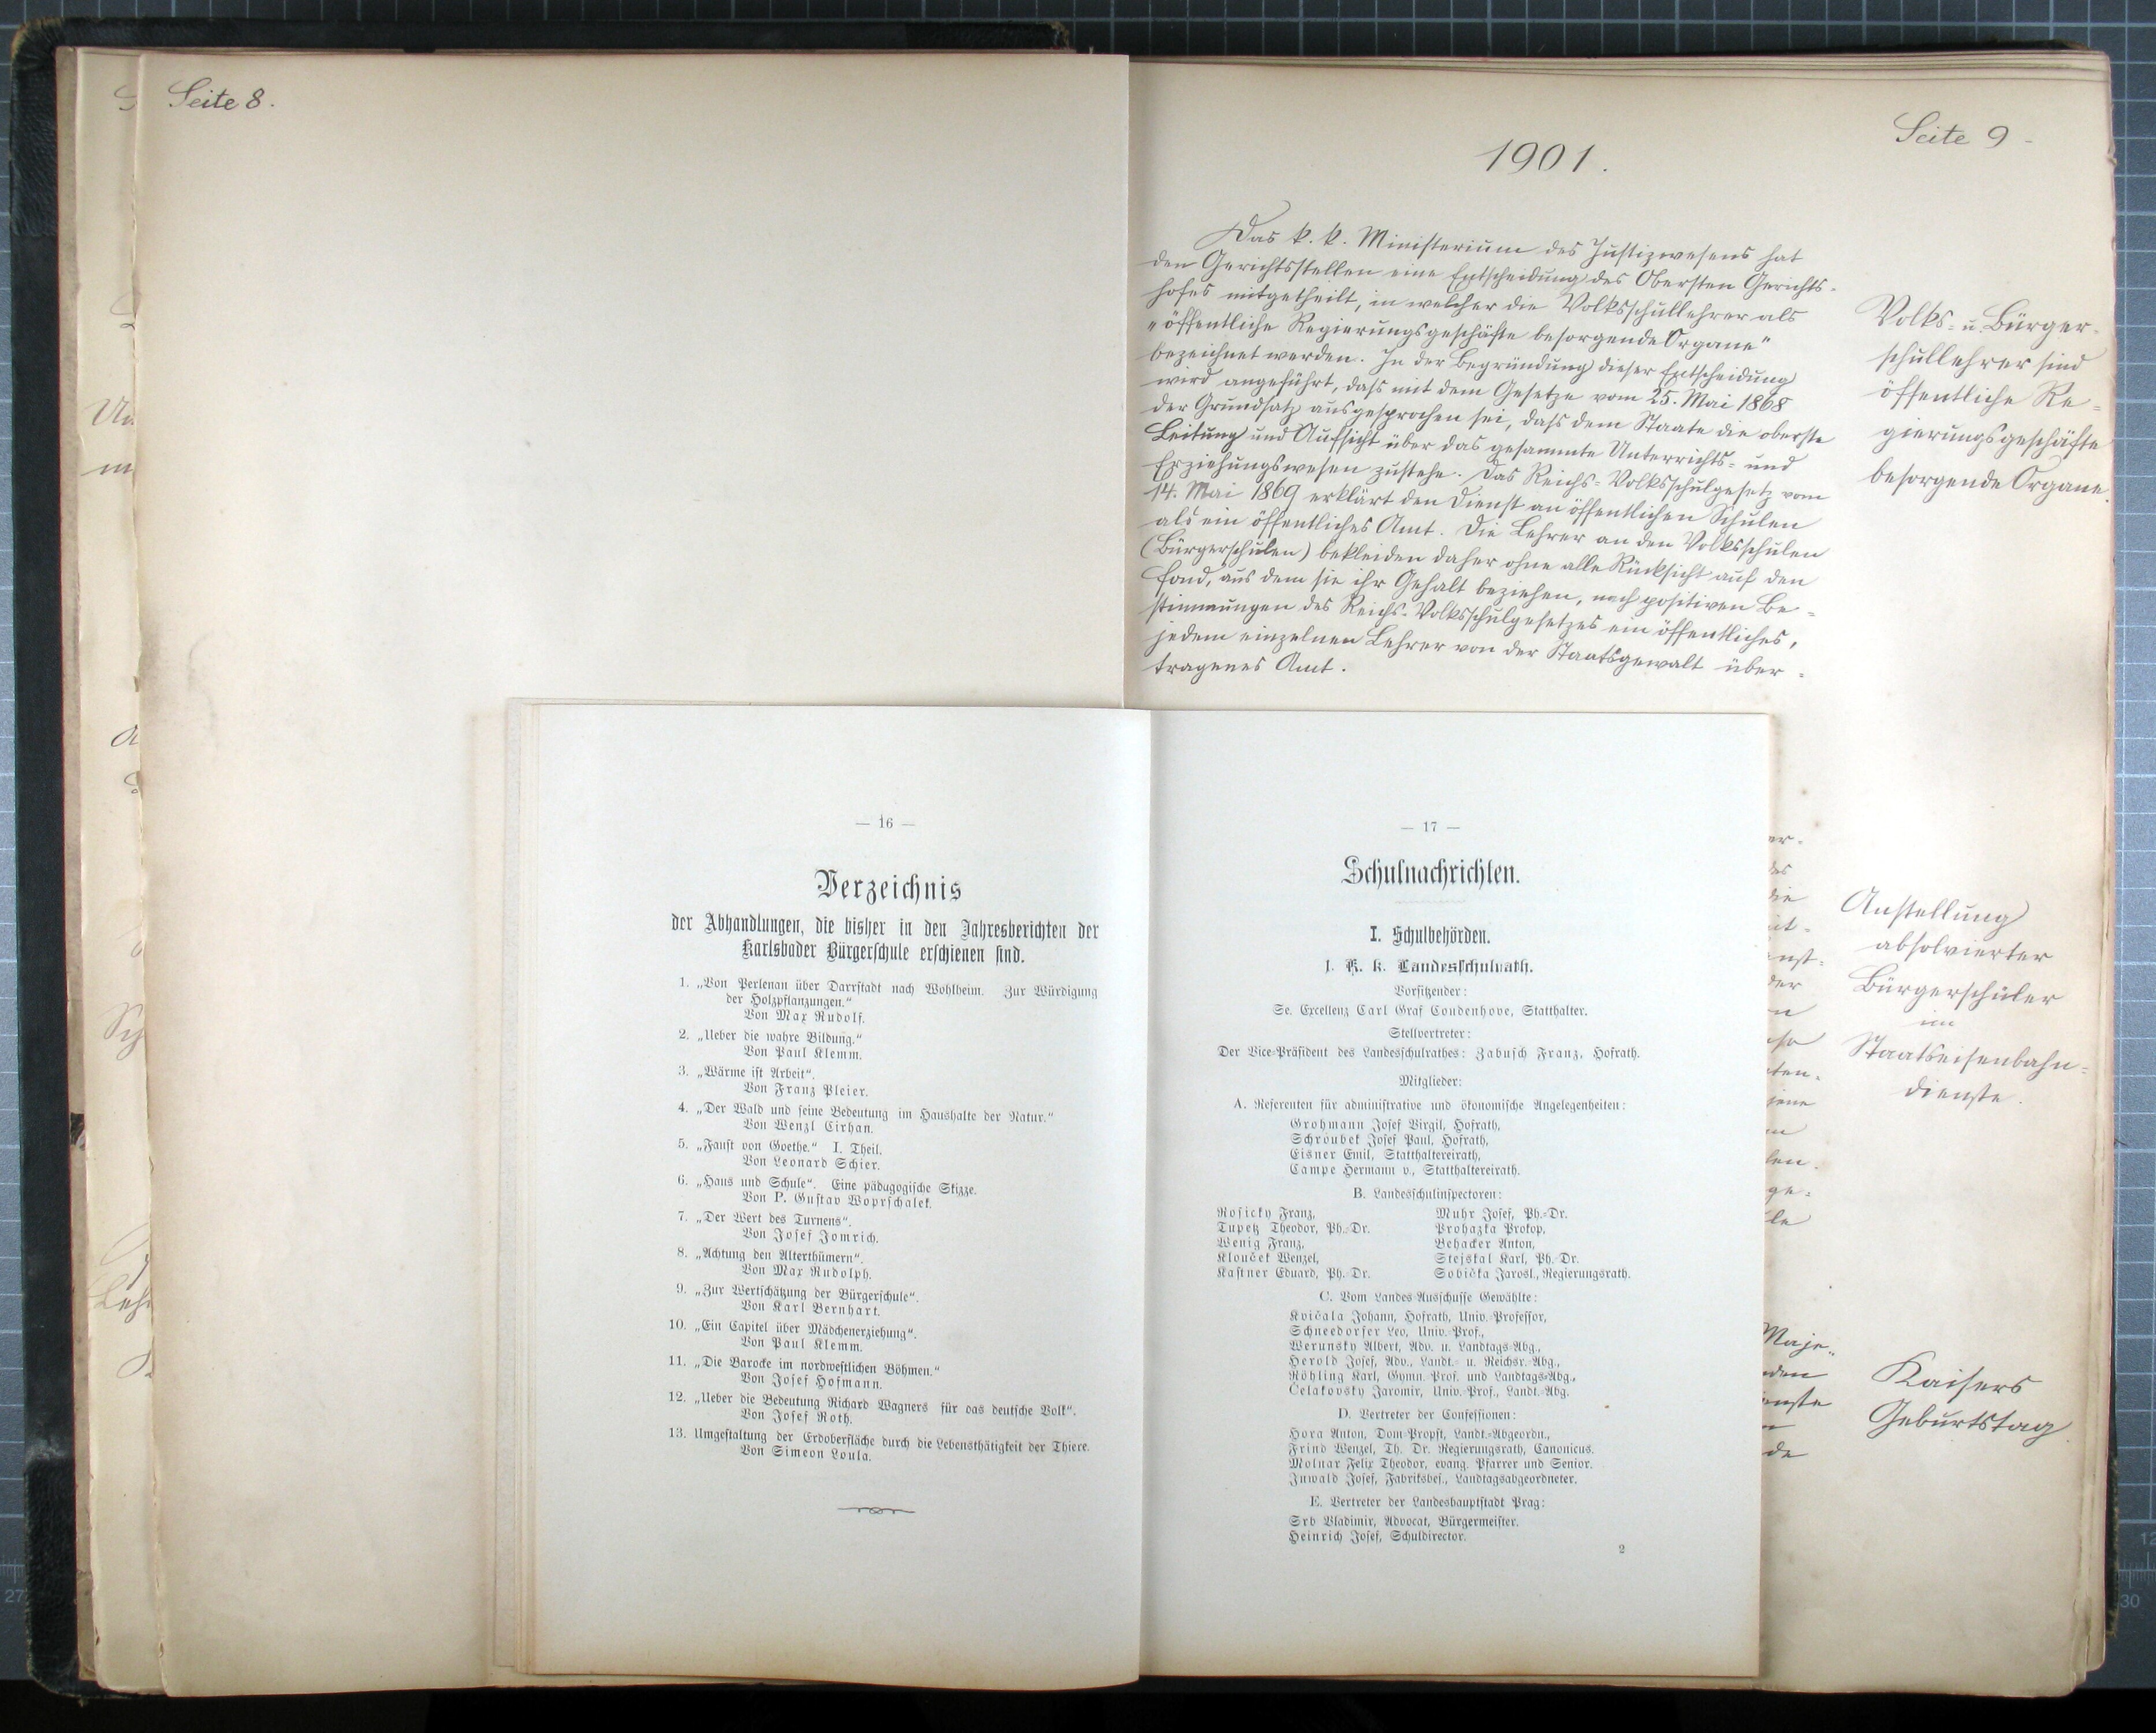 Seite 8.
1901.
Seite 9
Das k. k. Ministerium des Justizwesens hat
den Gerichtsstellen eine Entscheidung des Obersten Gerichts-
hofes mitgetheilt, in welcher die Volksschullehrer als
"öffentliche Regierungsgeschäfte besorgende Organe"
bezeichnet werden. In der Begründung dieser Entscheidung
wird angeführt, dass mit dem Gesetze vom 25. Mai 1868
der Grundsatz ausgesprochen sei, dass dem Staate die oberste
Leitung und Aufsicht über das gesammte Unterrichts- und
Erziehungswesen zustehe. Das Reichs-Volksschulgesetz vom
14. Mai 1869 erklärt den Dienst an öffentlichen Schulen
als ein öffentliches Amt. Die Lehrer an den Volksschulen
(Bürgerschulen) bekleiden daher ohne alle Rücksicht auf den
Fond, aus dem sie ihr Gehalt beziehen, nach positiven Be-
stimmungen des Reichs-Volksschulgesetzes ein öffentliches,
jedem einzelnen Lehrer von der Staatsgewalt über-
tragenes Amt.
Volks- u. Bürger-
schullehrer sind
öffentliche Re-
gierungsgeschäfte
besorgende Organe.
Anstellung
absolvierter
Bürgerschüler
im
Staatseisenbahn-
dienste.
Kaisers
Geburtstag.
— 16 —
Verzeichnis
der Abhandlungen, die bisher in den Jahresberichten der
Karlsbader Bürgerschule erschienen sind.
1. „Von Perlenau über Darrstadt nach Wohlheim. Zur Würdigung
der Holzpflanzungen."
Von Max Rudolf.
2. „Ueber die wahre Bildung."
Von Paul Klemm.
3. „Wärme ist Arbeit".
Von Franz Pleier.
4. „Der Wald und seine Bedeutung im Haushalte der Natur."
Von Wenzl Cirhan.
5. „Faust von Goethe." I. Theil.
Von Leonard Schier.
6. „Haus und Schule". Eine pädagogische Skizze.
Von P. Gustav Woprschalek.
7. „Der Wert des Turnens".
Von Josef Jomrich.
8. „Achtung den Alterthümern".
Von Max Rudolph.
9. „Zur Wertschätzung der Bürgerschule".
Von Karl Bernhart.
10. „Ein Capitel über Mädchenerziehung".
Von Paul Klemm.
11. „Die Barocke im nordwestlichen Böhmen."
Von Josef Hofmann.
12. „Ueber die Bedeutung Richard Wagners für das deutsche Volk".
Von Josef Roth.
13. Umgestaltung der Erdoberfläche durch die Lebensthätigkeit der Thiere.
Von Simeon Loula.
— 17 —
Schulnachrichten.
I. Schulbehörden.
1. K. k. Landesschulrath.
Vorsitzender:
Se. Excellenz Carl Graf Coudenhove, Statthalter.
Stellvertreter:
Der Vice-Präsident des Landesschulrathes: Zabusch Franz, Hofrath.
Mitglieder:
A. Referenten für administrative und ökonomische Angelegenheiten:
Grohmann Josef Virgil, Hofrath,
Schroubek Josef Paul, Hofrath,
Eisner Emil, Statthaltereirath,
Campe Hermann v., Statthaltereirath.
B. Landesschulinspectoren:
Rosicky Franz, Muhr Josef, Ph.-Dr.
Tupetz Theodor, Ph.-Dr. Prohazka Prokop,
Wenig Franz, Behacker Anton,
Klouček Wenzel, Stejskal Karl, Ph. Dr.
Kastner Eduard, Ph. Dr. Sobička Jarosl., Regierungsrath.
C. Vom Landes Ausschusse Gewählte:
Kvičala Johann, Hofrath, Univ. Professor,
Schneedorfer Leo, Univ.-Prof.,
Werunsky Albert, Adv. u. Landtags-Abg.,
Herold Josef, Adv., Landt.- u. Reichsr.-Abg.,
Röhling Karl, Gymn. Prof. und Landtags-Abg.,
Čelakovsky Jaromir, Univ.-Prof., Landt.-Abg.
D. Vertreter der Confessionen:
Hora Anton, Dom-Propst, Landt.-Abgeordn.,
Frind Wenzel, Th. Dr. Regierungsrath, Canonicus.
Molnar Felix Theodor, evang. Pfarrer und Senior.
Inwald Josef, Fabriksbes., Landtagsabgeordneter.
E. Vertreter der Landeshauptstadt Prag:
Srb Vladimir, Advocat, Bürgermeister.
Heinrich Josef, Schuldirector.
2